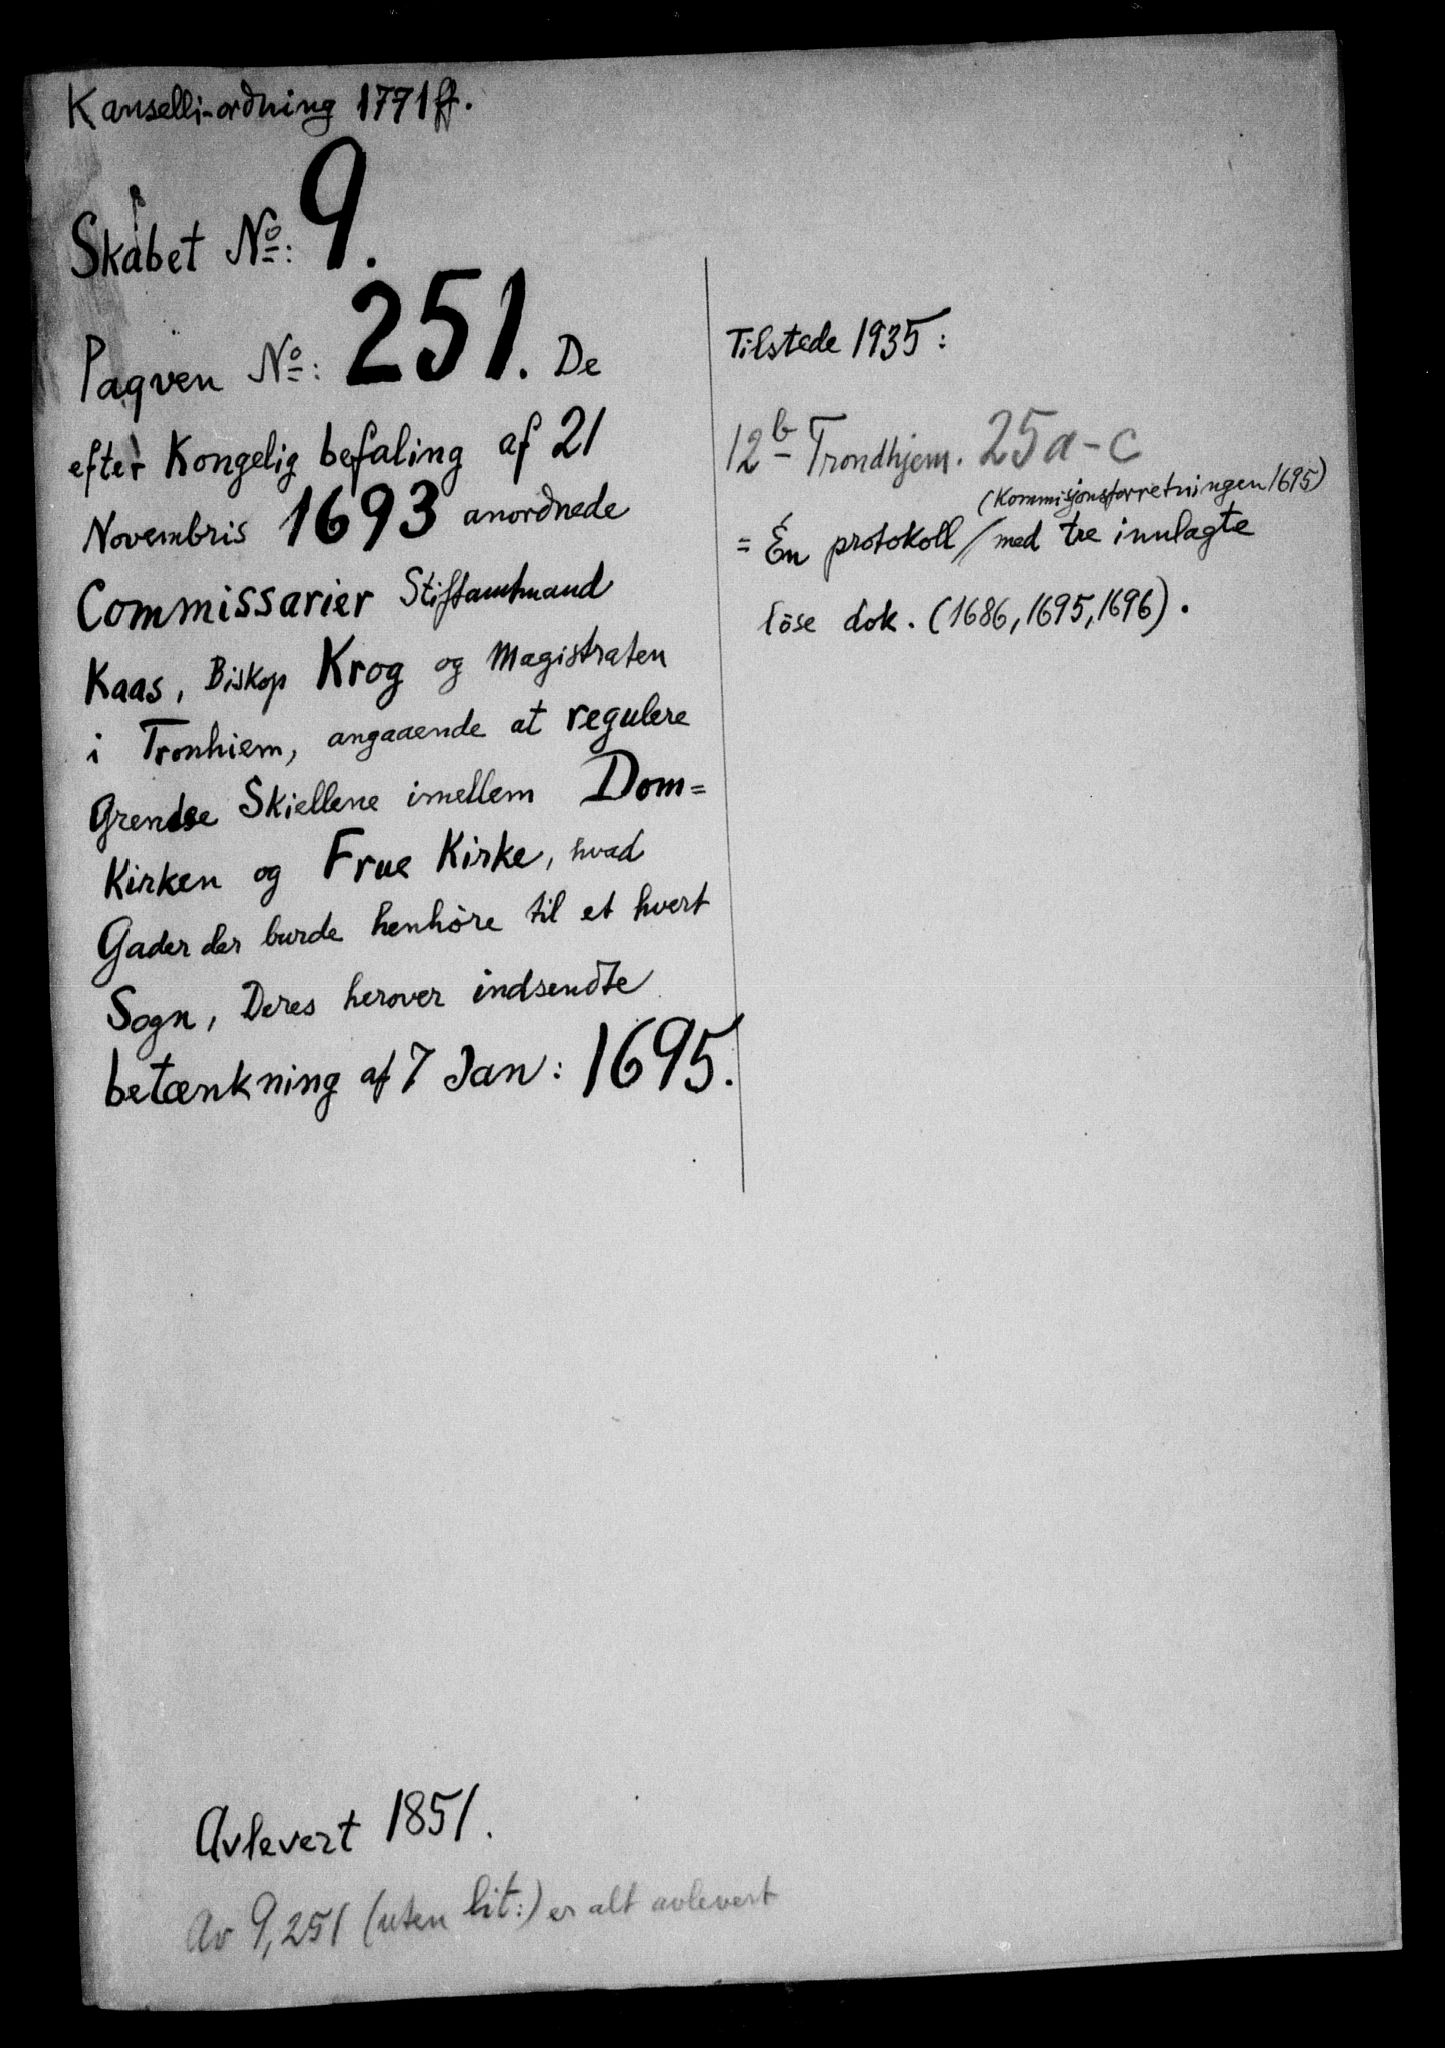 Kanselli-ordning 1771 ff.
Skabet No: 9.
Paqven No: 251. De
efter Kongelig befaling af 21
Novembris 1693 anordnede
Commissarier Stiftamtmand
Kaas, Biskop Krog og Magistraten
i Tronhiem, angaaende at regulere
Grendse Skiellene imellem Dom=
Kirken og Frue Kirke, hvad
Gader der burde henhøre til et hvert
Sogn, Deres herover indsendte
betænkning af 7 Jan: 1695.
Tilstede 1935:
12b Trondhjem. 25a-c
(Kommisjonsforretningen 1695)
= Én protokoll / med tre innlagte
löse dok. (1686, 1695, 1696).
Avlevert 1851.
Av 9,251 (uten lit:) er alt avlevert